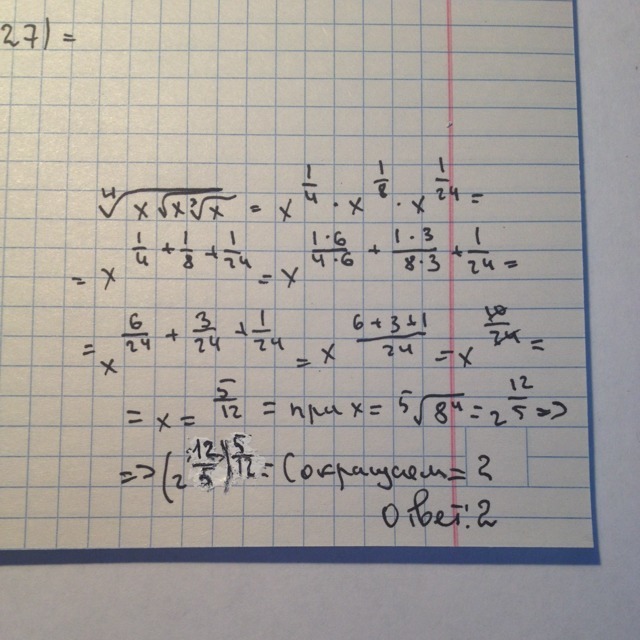 27) =
∜(x√(x∛x)) = x^(1/4) · x^(1/8) · x^(1/24) =
= x^(1/4 + 1/8 + 1/24) = x^((1·6)/(4·6) + (1·3)/(8·3) + 1/24) =
= x^(6/24 + 3/24 + 1/24) = x^((6+3+1)/24) = x^(10/24) =
= x = ^(5/12) = при x = ⁵√(8⁴) = 2^(12/5) =>
=> (2^(12/5))^(5/12) = Сокращаем = 2
Ответ: 2